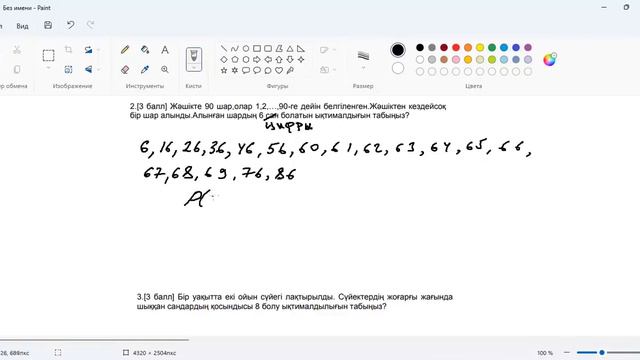 Без имени - Paint
Вид
Изображение
Инструменты
Кисти
Фигуры
Цвета
2.[3 балл] Жәшікте 90 шар,олар 1,2,…,90-ге дейін белгіленген.Жәшіктен кездейсоқ
бір шар алынды.Алынған шардың 6 сан болатын ықтималдығын табыңыз?
цифры
6, 16, 26, 36, 46, 56, 60, 61, 62, 63, 64, 65, 66,
67, 68, 69, 76, 86
P(
3.[3 балл] Бір уақытта екі ойын сүйегі лақтырылды. Сүйектердің жоғарғы жағында
шыққан сандардың қосындысы 8 болу ықтималдылығын табыңыз?
4320 × 2504пкс
100 %